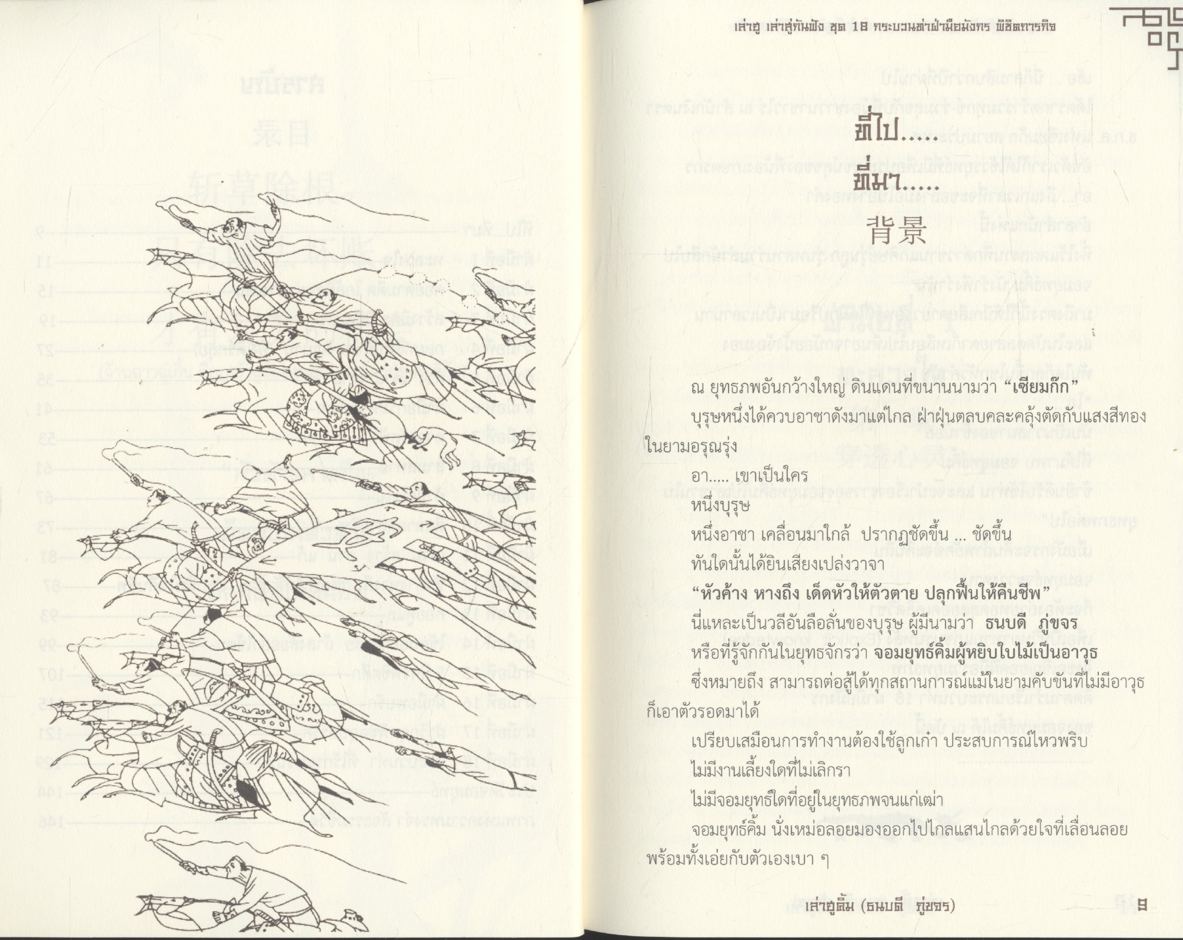 เล่าฮู เล่าสู่กันฟัง ชุด 18 กระบวนท่าฝ่ามือมังกร พิชิตภารกิจ
ที่ไป.....
ที่มา.....
背景
ณ ยุทธภพอันกว้างใหญ่ ดินแดนที่ขนานนามว่า “เซียมก๊ก”
บุรุษหนึ่งได้ควบอาชาดังมาแต่ไกล ฝ่าฝุ่นตลบคละคลุ้งตัดกับแสงสีทอง
ในยามอรุณรุ่ง
อา..... เขาเป็นใคร
หนึ่งบุรุษ
หนึ่งอาชา เคลื่อนมาใกล้ ปรากฏชัดขึ้น ... ชัดขึ้น
ทันใดนั้นได้ยินเสียงเปล่งวาจา
“หัวค้าง หางถึง เด็ดหัวให้ตัวตาย ปลุกฟื้นให้คืนชีพ”
นี่แหละเป็นวลีอันลือลั่นของบุรุษ ผู้มีนามว่า ธนบดี ภู่ขจร
หรือที่รู้จักกันในยุทธจักรว่า จอมยุทธ์คิ้มผู้หยิบใบไม้เป็นอาวุธ
ซึ่งหมายถึง สามารถต่อสู้ได้ทุกสถานการณ์แม้ในยามคับขันที่ไม่มีอาวุธ
ก็เอาตัวรอดมาได้
เปรียบเสมือนการทำงานต้องใช้ลูกเก๋า ประสบการณ์ไหวพริบ
ไม่มีงานเลี้ยงใดที่ไม่เลิกรา
ไม่มีจอมยุทธ์ใดที่อยู่ในยุทธภพจนแก่เฒ่า
จอมยุทธ์คิ้ม นั่งเหม่อลอยมองออกไปไกลแสนไกลด้วยใจที่เลื่อนลอย
พร้อมทั้งเอ่ยกับตัวเองเบา ๆ
เล่าฮูคิ้ม (ธนบดี ภู่ขจร)
9